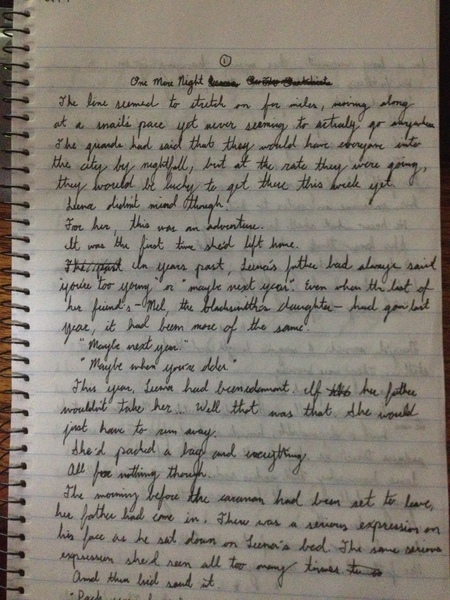 1
One More Night
The line seemed to stretch on for miles, moving along
at a snail's pace yet never seeming to actualy go anywhere
The guards had said that they would have everyone into
the city by nightfall, but at the rate they were going,
they would be lucky to get there this week yet.
Leena didn't mind though.
For her, this was an adventure.
It was the first time she'd left home.
In years past, Leena's father had always said
"you're too young" or "maybe next year". Even when the last of
her friend's - Mel, the blacksmiths daughter - had gon last
year, it had been more of the same.
"Maybe next year."
"Maybe when you're older"
This year, Leena had been adamant. If her father
wouldn't take her... Well that was that. She would
just have to run away.
She'd packed a bag and everything.
All for nothing though.
The morning before the caravan had been set to leave,
her father had come in. There was a serious expression on
his face as he sat down on Leena's bed. The same serious
expression she'd seen all too many times
And then he'd said it.